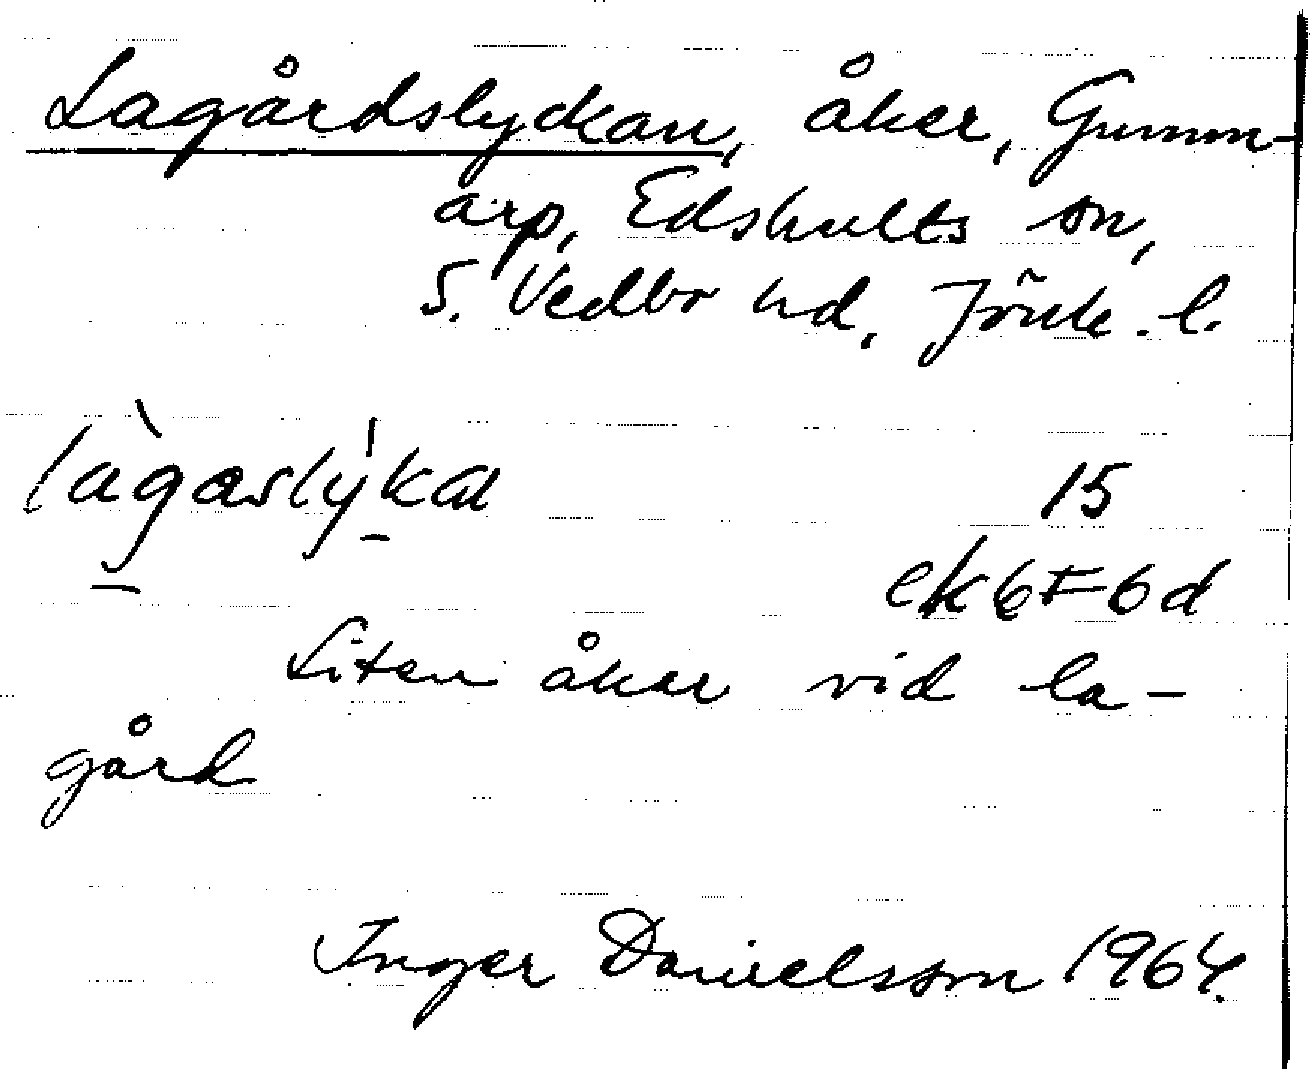 Lagårdslyckan, åker, Gumm-
arp, Edshults sn,
S. Vedbo hd, Jönk. l.
làgaslý̱ka 15
ek6F6d
Liten åker vid la-
gård
Inger Danielsson 1964.